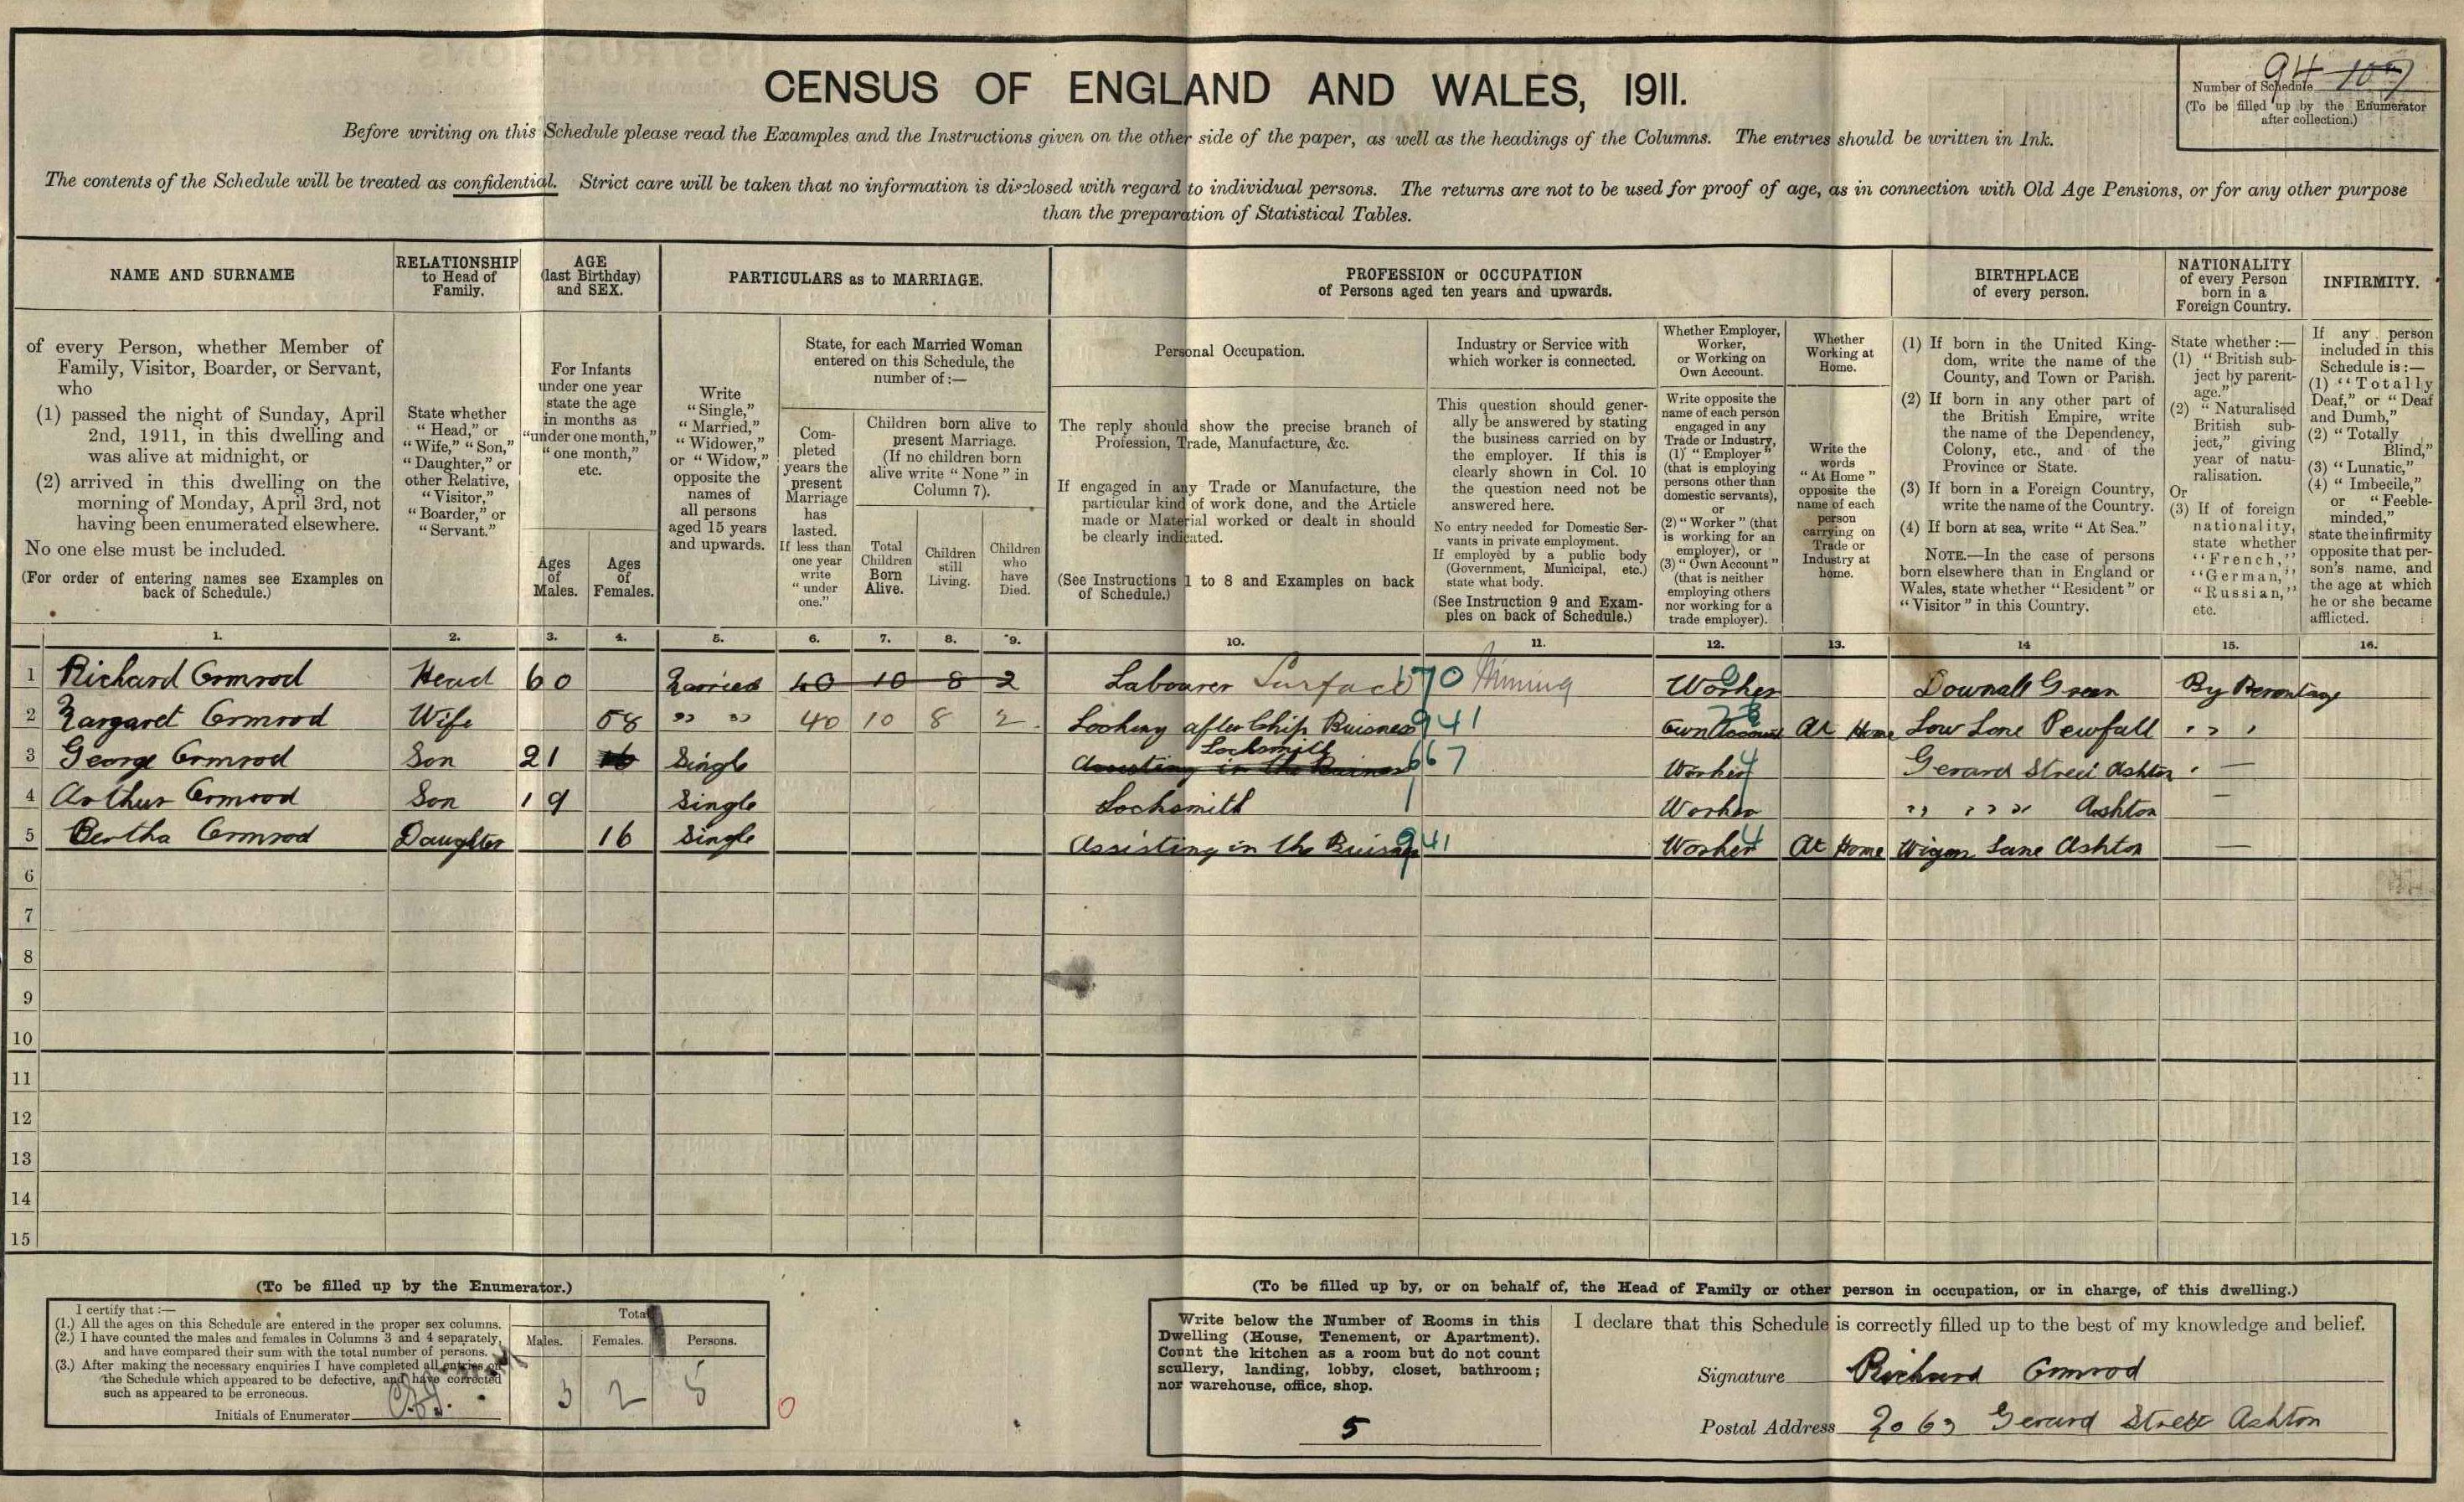 94 107
Number of Schedule
(To be filled up by the Enumerator
after collection.)
CENSUS OF ENGLAND AND WALES, 1911.
Before writing on this Schedule please read the Examples and the Instructions given on the other side of the paper, as well as the headings of the Columns. The entries should be written in Ink.
The contents of the Schedule will be treated as confidential. Strict care will be taken that no information is disclosed with regard to individual persons. The returns are not to be used for proof of age, as in connection with Old Age Pensions, or for any other purpose
than the preparation of Statistical Tables.
NAME AND SURNAME
of every Person, whether Member of
Family, Visitor, Boarder, or Servant,
who
(1) passed the night of Sunday, April
2nd, 1911, in this dwelling and
was alive at midnight, or
(2) arrived in this dwelling on the
morning of Monday, April 3rd, not
having been enumerated elsewhere.
No one else must be included.
(For order of entering names see Examples on
back of Schedule.)
RELATIONSHIP
to Head of
Family.
State whether
"Head," or
"Wife," "Son,"
"Daughter," or
other Relative,
"Visitor,"
"Boarder," or
"Servant."
AGE
(last Birthday)
and SEX.
For Infants
under one year
state the age
in months as
"under one month,"
"one month,"
etc.
Ages
of
Males.
Ages
of
Females.
PARTICULARS as to MARRIAGE.
Write
"Single,"
"Married,"
"Widower,"
or "Widow,"
opposite the
names of
all persons
aged 15 years
and upwards.
State, for each Married Woman
entered on this Schedule, the
number of :—
Com-
pleted
years the
present
Marriage
has
lasted.
If less than
one year
write
"under
one."
Children born alive to
present Marriage.
(If no children born
alive write "None" in
Column 7).
Total
Children
Born
Alive.
Children
still
Living.
Children
who
have
Died.
PROFESSION or OCCUPATION
of Persons aged ten years and upwards.
Personal Occupation.
The reply should show the precise branch of
Profession, Trade, Manufacture, &c.
If engaged in any Trade or Manufacture, the
particular kind of work done, and the Article
made or Material worked or dealt in should
be clearly indicated.
(See Instructions 1 to 8 and Examples on back
of Schedule.)
Industry or Service with
which worker is connected.
This question should gener-
ally be answered by stating
the business carried on by
the employer. If this is
clearly shown in Col. 10
the question need not be
answered here.
No entry needed for Domestic Ser-
vants in private employment.
If employed by a public body
(Government, Municipal, etc.)
state what body.
(See Instruction 9 and Exam-
ples on back of Schedule.)
Whether Employer,
Worker,
or Working on
Own Account.
Write opposite the
name of each person
engaged in any
Trade or Industry,
(1) "Employer"
(that is employing
persons other than
domestic servants),
or
(2) "Worker" (that
is working for an
employer), or
(3) "Own Account"
(that is neither
employing others
nor working for a
trade employer).
Whether
Working at
Home.
Write the
words
"At Home"
opposite the
name of each
person
carrying on
Trade or
Industry at
home.
BIRTHPLACE
of every person.
(1) If born in the United King-
dom, write the name of the
County, and Town or Parish.
(2) If born in any other part of
the British Empire, write
the name of the Dependency,
Colony, etc., and of the
Province or State.
(3) If born in a Foreign Country,
write the name of the Country.
(4) If born at sea, write "At Sea."
NOTE.—In the case of persons
born elsewhere than in England or
Wales, state whether "Resident" or
"Visitor" in this Country.
NATIONALITY
of every Person
born in a
Foreign Country.
State whether :—
(1) "British sub-
ject by parent-
age."
(2) "Naturalised
British sub-
ject," giving
year of natu-
ralisation.
Or
(3) If of foreign
nationality,
state whether
"French,"
"German,"
"Russian,"
etc.
INFIRMITY.
If any person
included in this
Schedule is :—
(1) "Totally
Deaf," or "Deaf
and Dumb,"
(2) "Totally
Blind,"
(3) "Lunatic,"
(4) "Imbecile,"
or "Feeble-
minded,"
state the infirmity
opposite that per-
son's name, and
the age at which
he or she became
afflicted.
1. 2. 3. 4. 5. 6. 7. 8. 9. 10. 11. 12. 13. 14 15. 16.
1 Richard Ormrod Head 60 Married 40 10 8 2 Labourer Surface 170 Mining Worker Downall Green By Perentage
2 Margaret Ormrod Wife 58 " " 40 10 8 2 Looking after Chip Buisness 941 Own Account At Home Low Lone Pewfall " "
3 George Ormrod Son 21 16 Single Assisting in the Buisness Locksmith 667 Worker Gerard Street Ashton —
4 Arthur Ormrod Son 19 Single Locksmith Worker " " " " Ashton —
5 Bertha Ormrod Daughter 16 Single Assisting in the Buisness 941 Worker At Home Wigan Lane Ashton —
6
7
8
9
10
11
12
13
14
15
(To be filled up by the Enumerator.)
I certify that :—
(1.) All the ages on this Schedule are entered in the proper sex columns.
(2.) I have counted the males and females in Columns 3 and 4 separately,
and have compared their sum with the total number of persons.
(3.) After making the necessary enquiries I have completed all entries on
the Schedule which appeared to be defective, and have corrected
such as appeared to be erroneous.
Initials of Enumerator
Total
Males. Females. Persons.
3 2 5
0
(To be filled up by, or on behalf of, the Head of Family or other person in occupation, or in charge, of this dwelling.)
Write below the Number of Rooms in this
Dwelling (House, Tenement, or Apartment).
Count the kitchen as a room but do not count
scullery, landing, lobby, closet, bathroom;
nor warehouse, office, shop.
5
I declare that this Schedule is correctly filled up to the best of my knowledge and belief.
Signature Richard Ormrod
Postal Address 63 Gerard Street Ashton